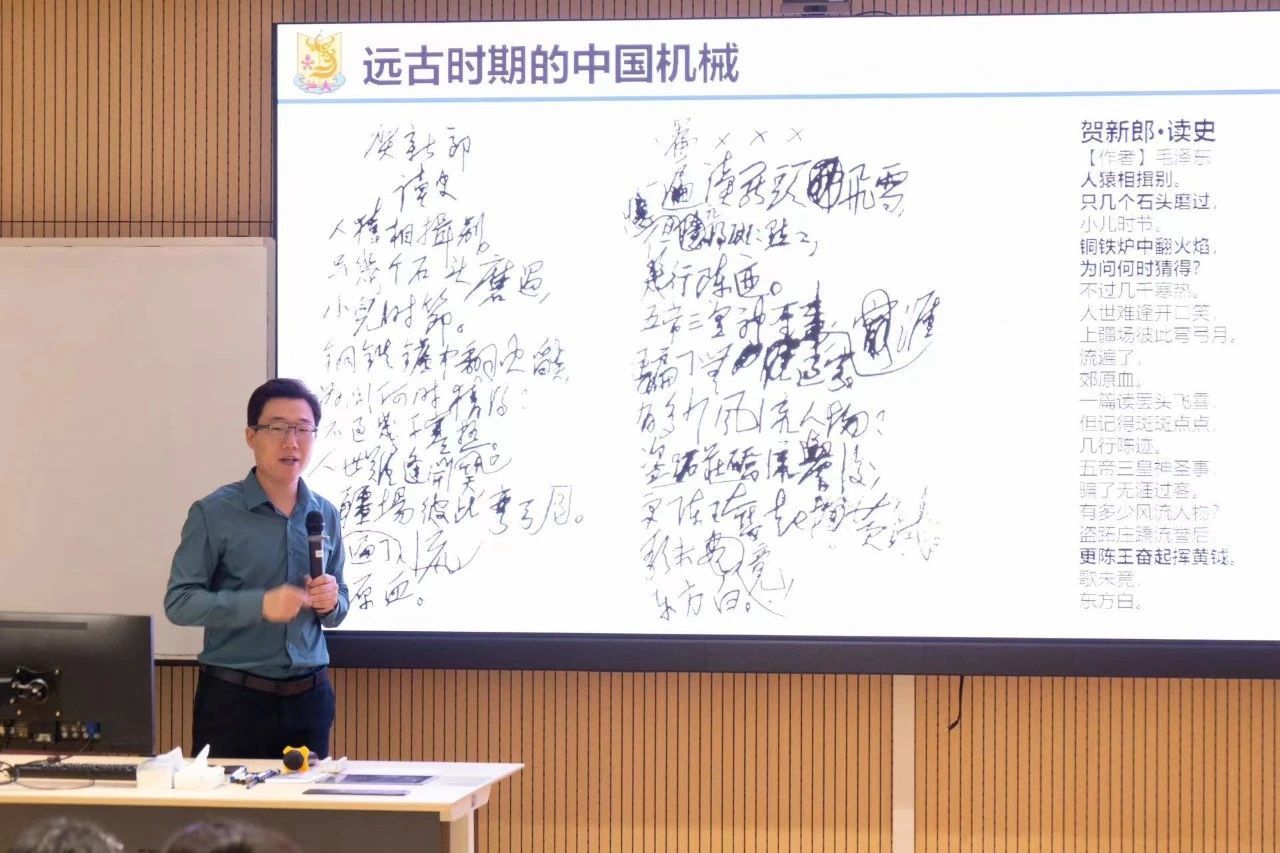 汕大
远古时期的中国机械
賀新郎
读史
人猿相揖别。
只幾个石头磨过,
小兒时節。
铜铁炉中翻火焰,
为问何时猜得?
不过幾千寒热。
人世难逢開
疆场彼此弯弓月。
遍了流
原血。
× × ×
读罢头飞雪,
幾行陈迹。
五帝三皇神圣事
骗了
有多少风流人物?
盗跖庄蹻流誉後,
更陈王奋起挥黄钺。
歌未竟,
东方白。
贺新郎·读史
【作者】毛泽东
人猿相揖别。
只几个石头磨过,
小儿时节。
铜铁炉中翻火焰,
为问何时猜得?
不过几千寒热。
人世难逢开口笑,
上疆场彼此弯弓月。
流遍了,
郊原血。
一篇读罢头飞雪,
但记得斑斑点点,
几行陈迹。
五帝三皇神圣事,
骗了无涯过客。
有多少风流人物?
盗跖庄蹻流誉后,
更陈王奋起挥黄钺。
歌未竟,
东方白。